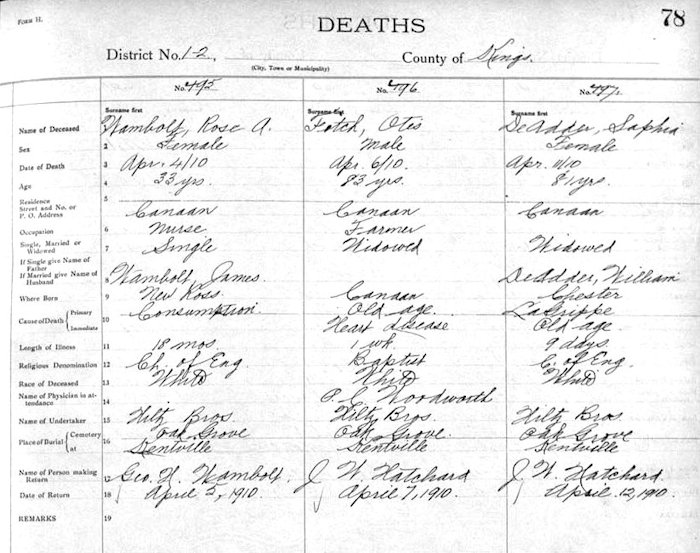 FORM H.
DEATHS
78
District No. 1-2, County of Kings.
(City, Town or Municipality)
No. 495 No. 496 No. 497
Surname first Surname first Surname first
Name of Deceased 1 Wambolt, Rose A. Fotch, Otis DeAdder, Sophia
Sex 2 Female Male Female
Date of Death 3 Apr. 4/10 Apr. 6/10 Apr. 11/10
Age 4 33 yrs. 83 yrs. 81 yrs.
Residence 5
Street and No. or
P. O. Address Canaan Canaan Canaan
Occupation 6 Nurse Farmer
Single, Married or
Widowed 7 Single Widowed Widowed
If Single give Name of
Father
If Married give Name of
Husband 8 Wambolt, James DeAdder, William
Where Born 9 New Ross Canaan Chester
Cause of Death { Primary 10 Consumption Old age. LaGrippe
Immediate Heart disease Old age
Length of Illness 11 18 mos. 1 wk 9 days.
Religious Denomination 12 Ch. of Eng Baptist C. of Eng.
Race of Deceased 13 White White White
Name of Physician in at-
tendance 14 P. C. Woodworth
Name of Undertaker 15 Hiltz Bros. Hiltz Bros. Hiltz Bros.
Place of Burial { Cemetery 16 Oak Grove Oak Grove. Oak Grove
at Kentville Kentville Kentville
Name of Person making
Return 17 Geo. H. Wambolt J. W. Hatchard J. W. Hatchard
Date of Return 18 April 5, 1910. April 7, 1910. April 12, 1910.
REMARKS 19